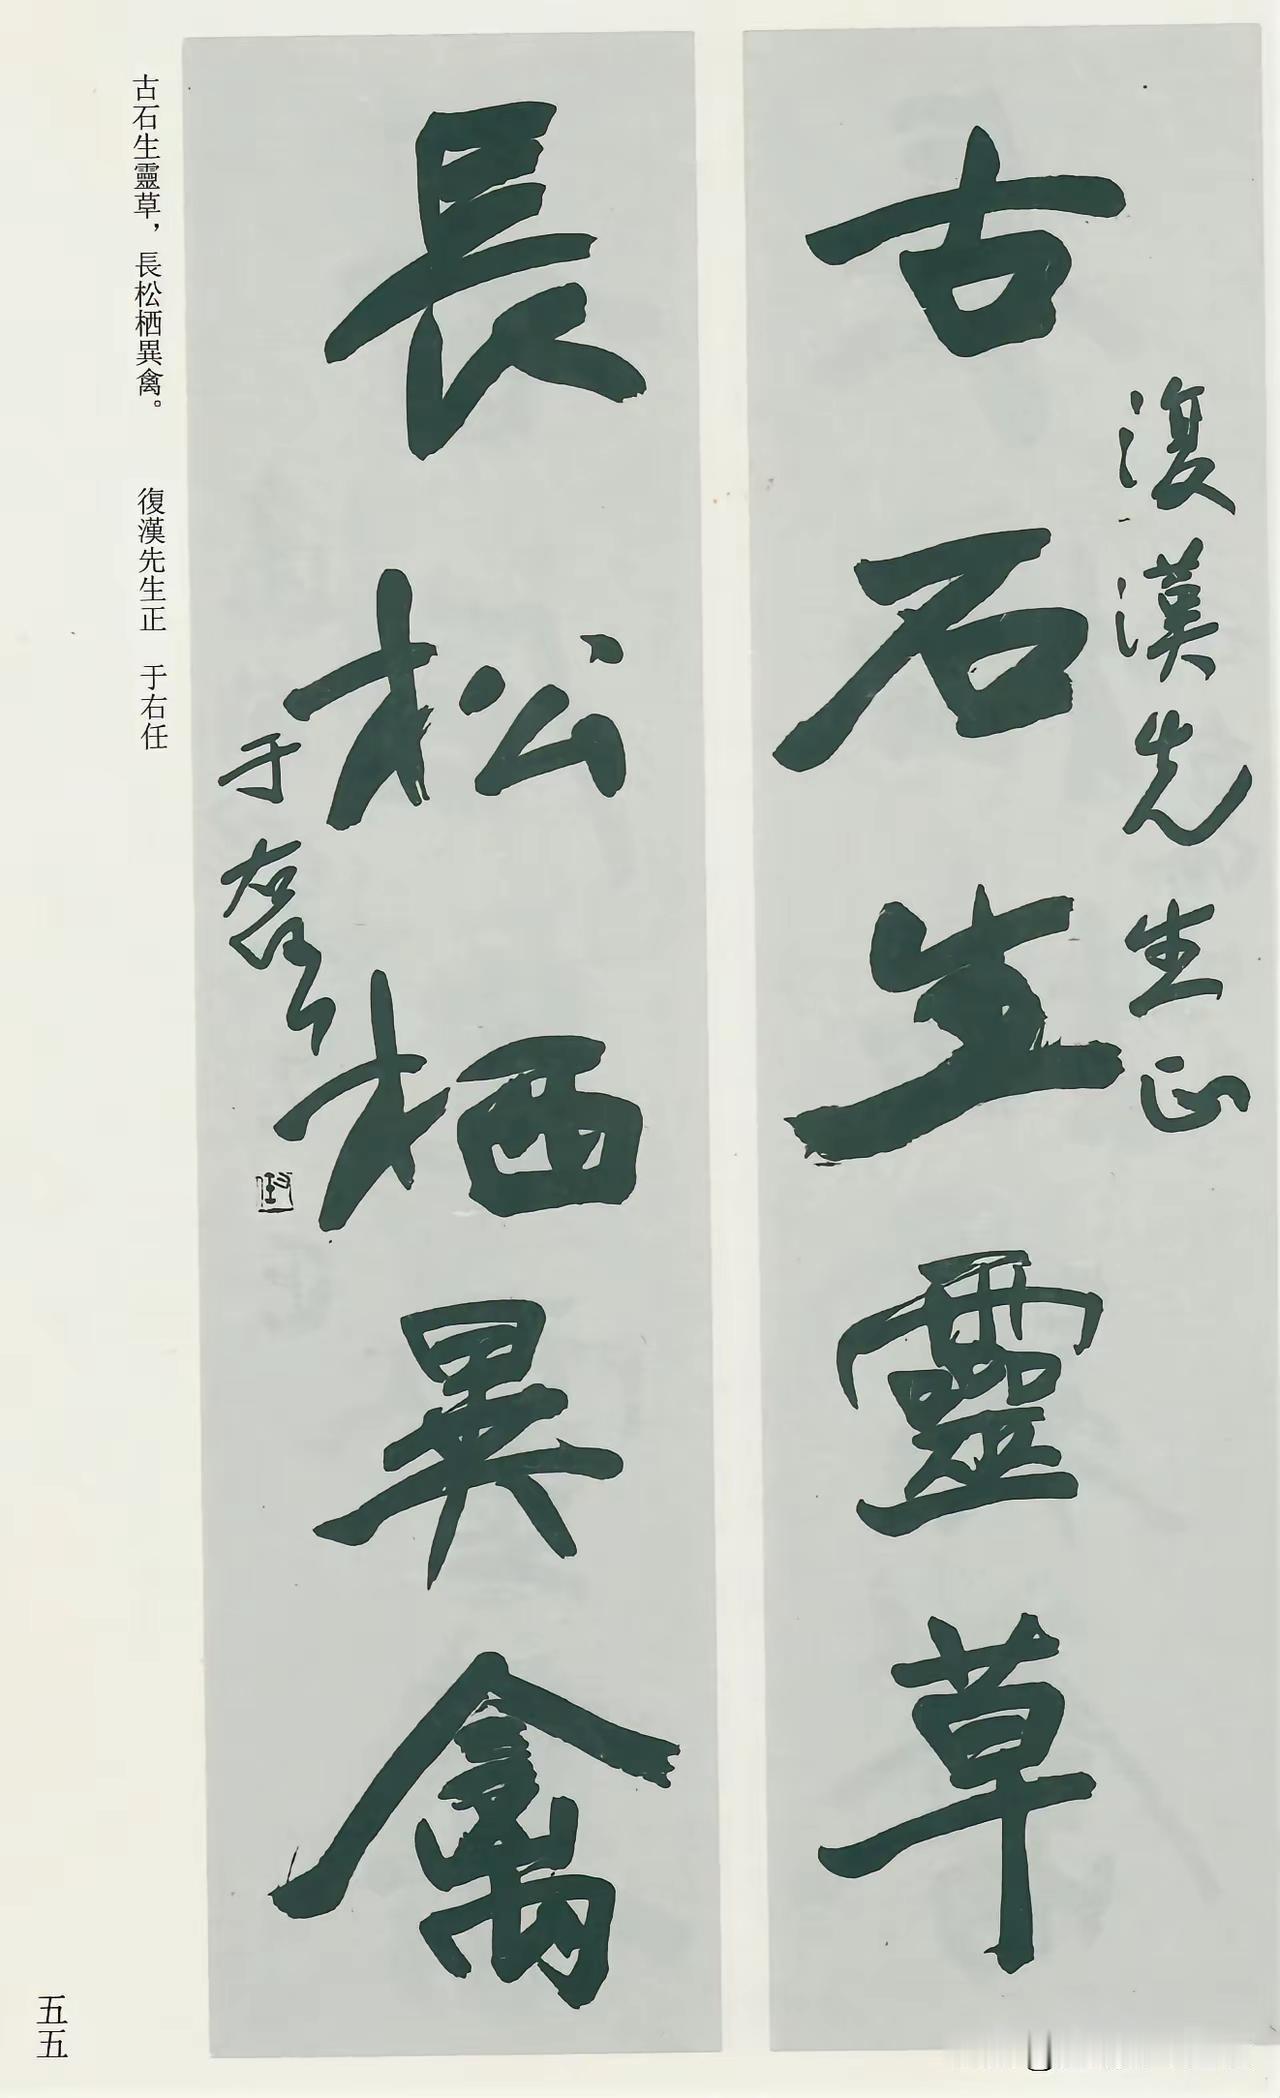 復漢先生正
古石生靈草
長松栖異禽
于右任
古石生靈草，長松栖異禽。　復漢先生正　于右任
五五